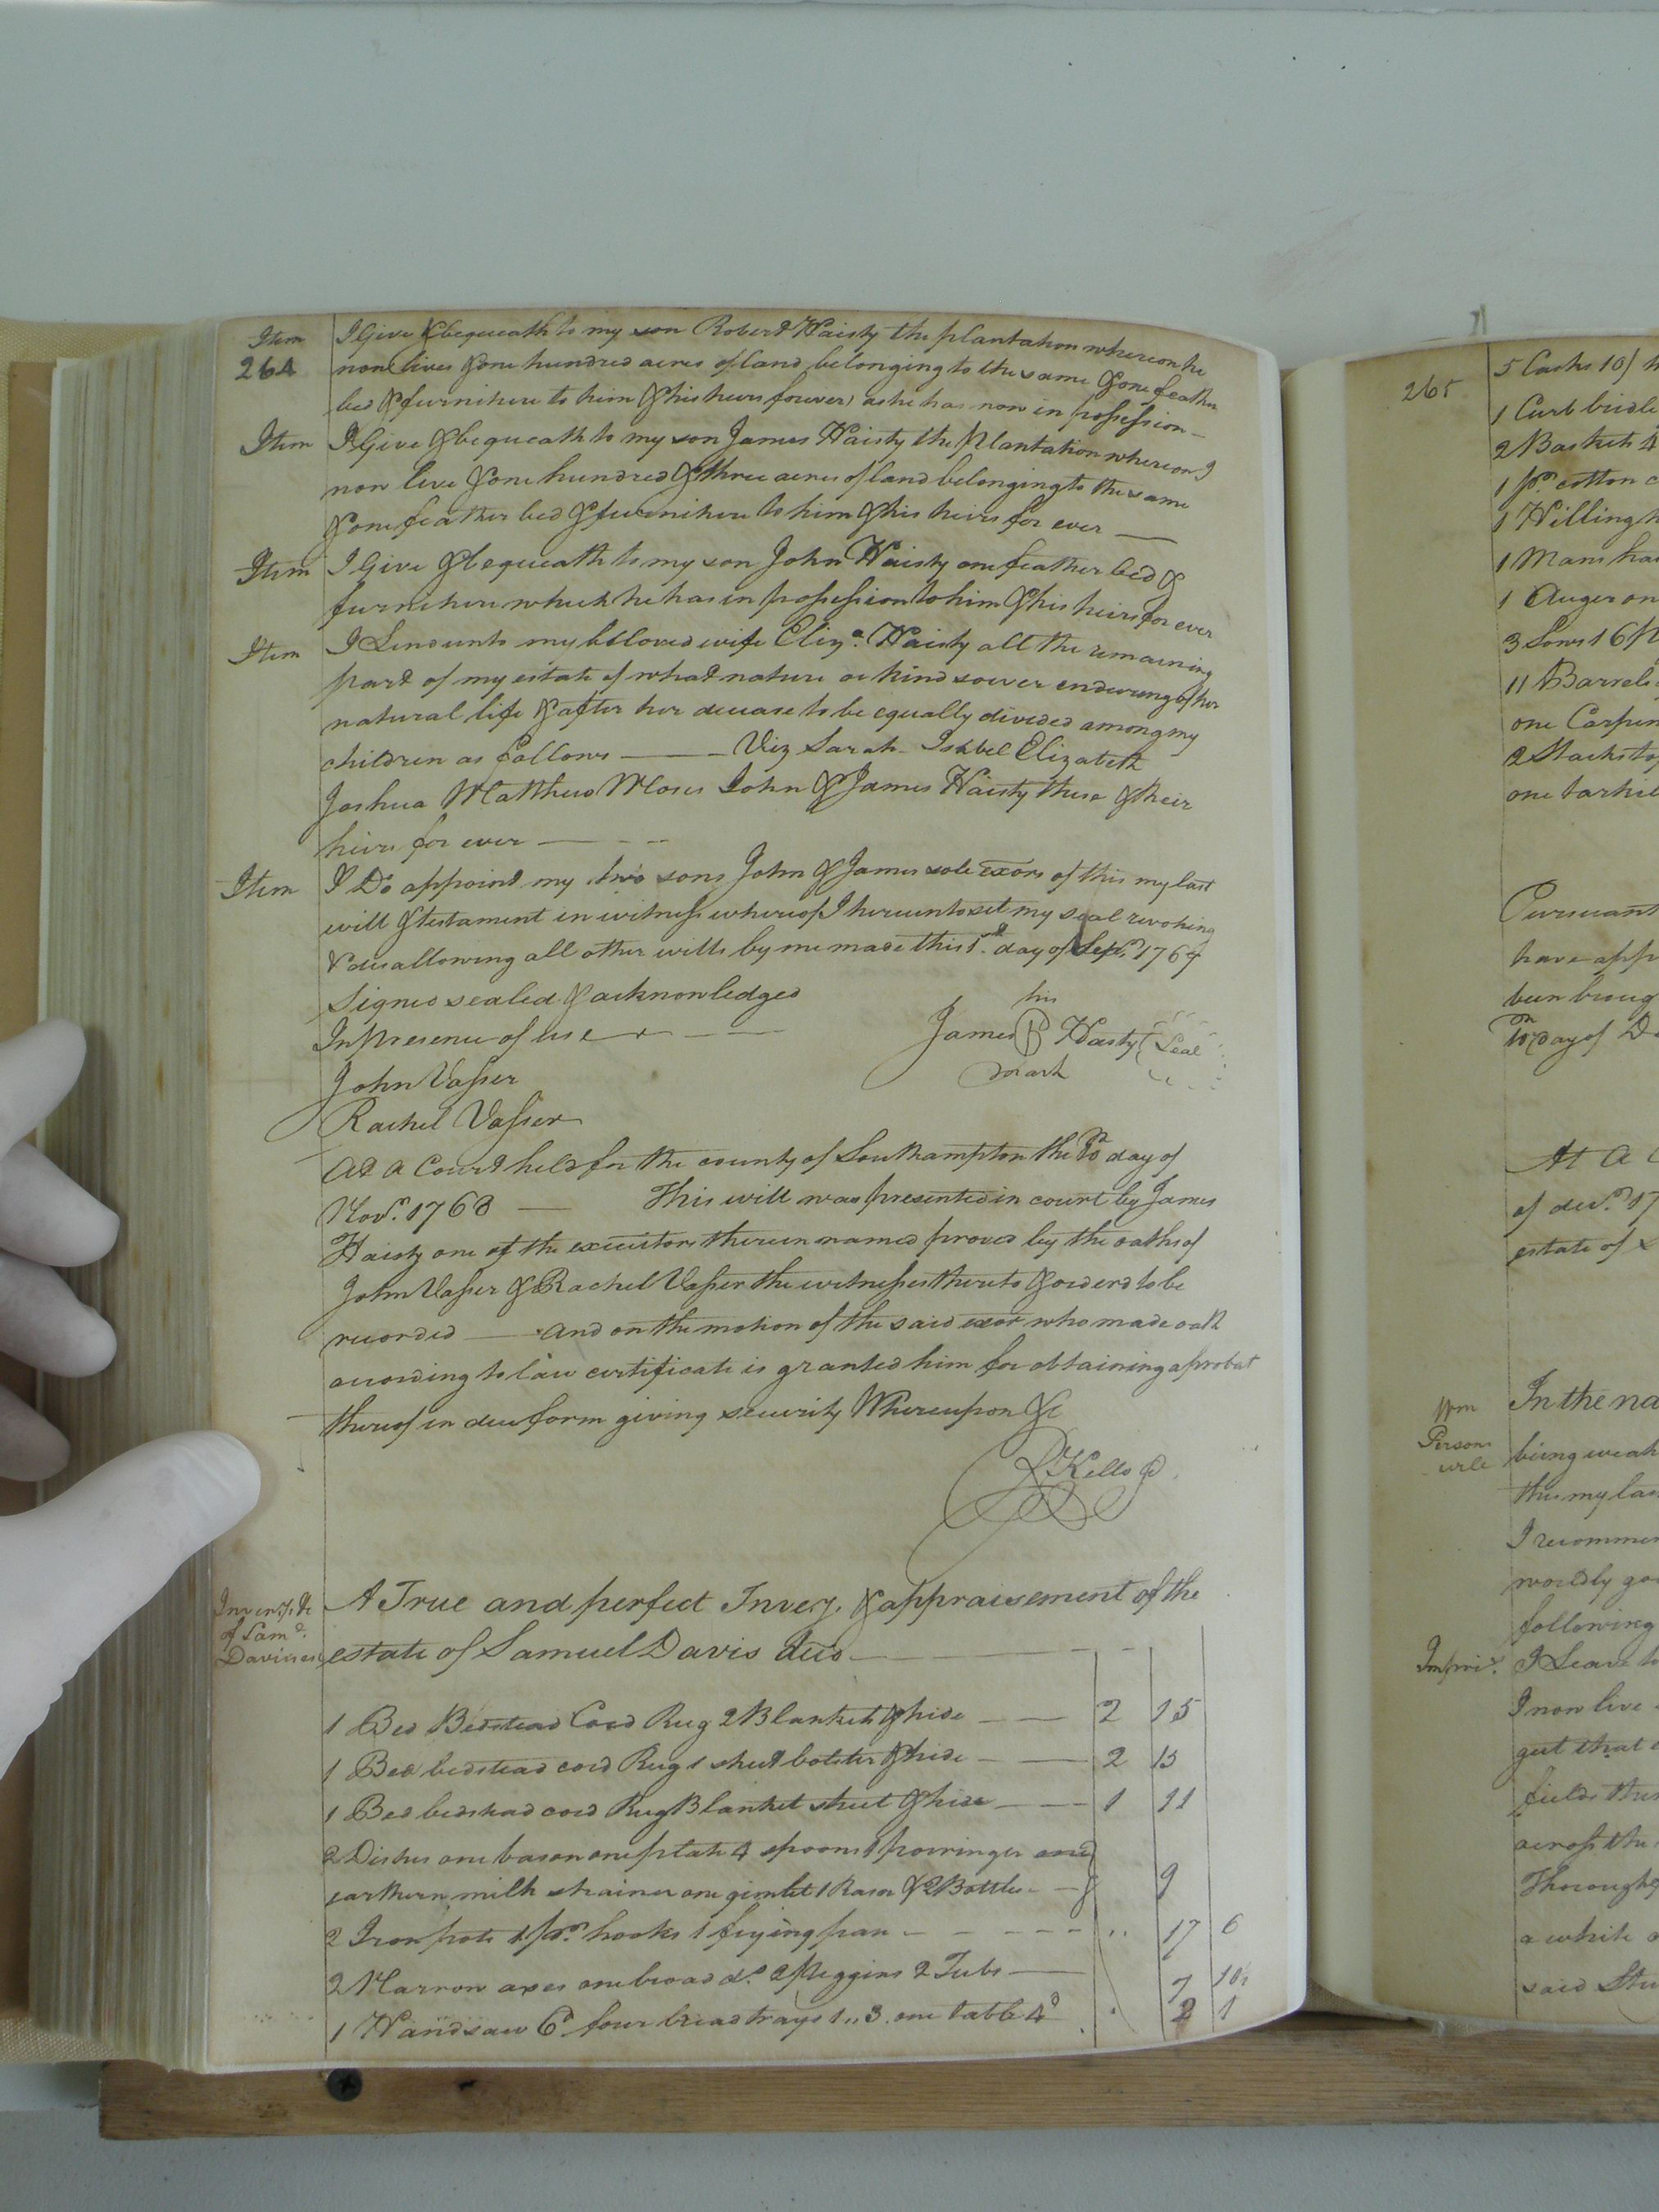 Item I Give & bequeath to my son Robert Haisty the plantation whereon he
264 now lives & one hundred acres of land belonging to the same & one feather
bed & furniture to him & his heirs forever as he has now in possession
Item I Give & bequeath to my son James Haisty the Plantation whereon I
now live & one hundred & three acres of land belonging to the same
& one feather bed & furniture to him & his heirs for ever
Item I Give & bequeath to my son John Haisty one feather bed &
furniture which he has in possession to him & his heirs for ever
Item I Lend unto my beloved wife Eliza. Haisty all the remaining
part of my estate of what nature or kind soever endureing of her
natural life & after her decease to be equally divided among my
children as follows Viz Sarah Isabel Elizabeth
Joshua Matthew Moses John & James Haisty these & their
heirs for ever
Item I Do appoint my two sons John & James sole exors of this my last
will & testament in witness whereof I hereunto set my seal revoking
& disallowing all other wills by me made this 1st day of Sept. 1764
Signed sealed & acknowledged
In presence of us his
James B Hasty Seal
mark
John Vasser
Rachel Vasser
At a Court held for the county of Southampton the 10 day of
Nov. 1768 This will was presented in court by James
Haisty one of the executors therein named proved by the oaths of
John Vasser & Rachel Vasser the witnesses thereto & orderd to be
recorded and on the motion of the said exor who made oath
according to law certificate is granted him for obtaining a probat
thereof in due form giving security Whereupon &c
R Kello
Inventy &c
of Sam.
Davis es
A True and perfect Invey. & appraisement of the
estate of Samuel Davis decd
1 Bed Bedstead Cord Rug 2 Blankets & hide 2 15
1 Bed bedstead cord Rug 1 sheet bolster & hide 2 15
1 Bed bedstead cord Rug Blanket sheet & hide 1 11
2 Dishes one bason one plate 4 spoons 1 porringer one
earthern milk strainer one gimlet 1 Rasor & 2 Bottles 9
2 Iron pots 1 pr. hooks 1 frying pan 17 6
2 Narrow axes one broad do. 2 Piggins 2 Tubs 7 10
1 Handsaw 6d four bread trays 1,,3 one table 4d 2 1
265
5 Casks 10/
1 Curb bridle
2 Baskets 4
1 pr. cotton c
1 Hilling h
1 Mans
1 Auger on
3 Sows 16
11 Barrels
one Carpen
2 Stacks
one
Pursuant
have app
been broug
10 day of De
At a C
of decr. 17
estate of
Wm
Persons
will
In the na
being weak
this my las
I recommen
worldly goo
following
Impris. I Leave to
I now live
gut that
fields
across the
Thorough
a white o
said